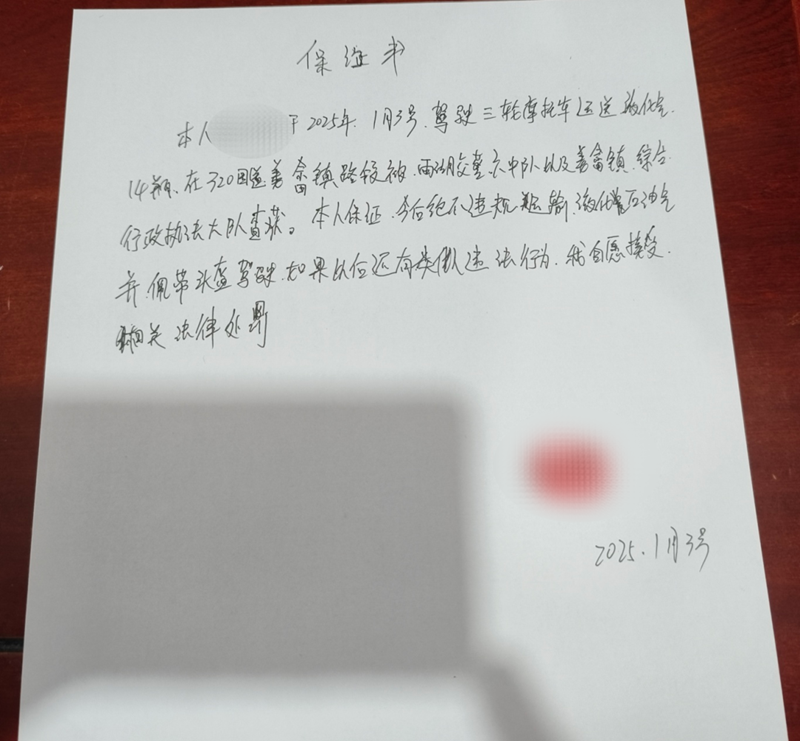 保证书
本人 于2025年.1月3号.驾驶三轮摩托车运送液化气.
14瓶.在320国道姜畲镇路段被.雨湖交警六中队以及姜畲镇.综合
行政执法大队查获。本人保证.今后绝不违规运输.液化石油气
并佩带头盔驾驶.如果以后还有类似违法行为.我自愿接受.
相关法律处罚
2025.1月3号